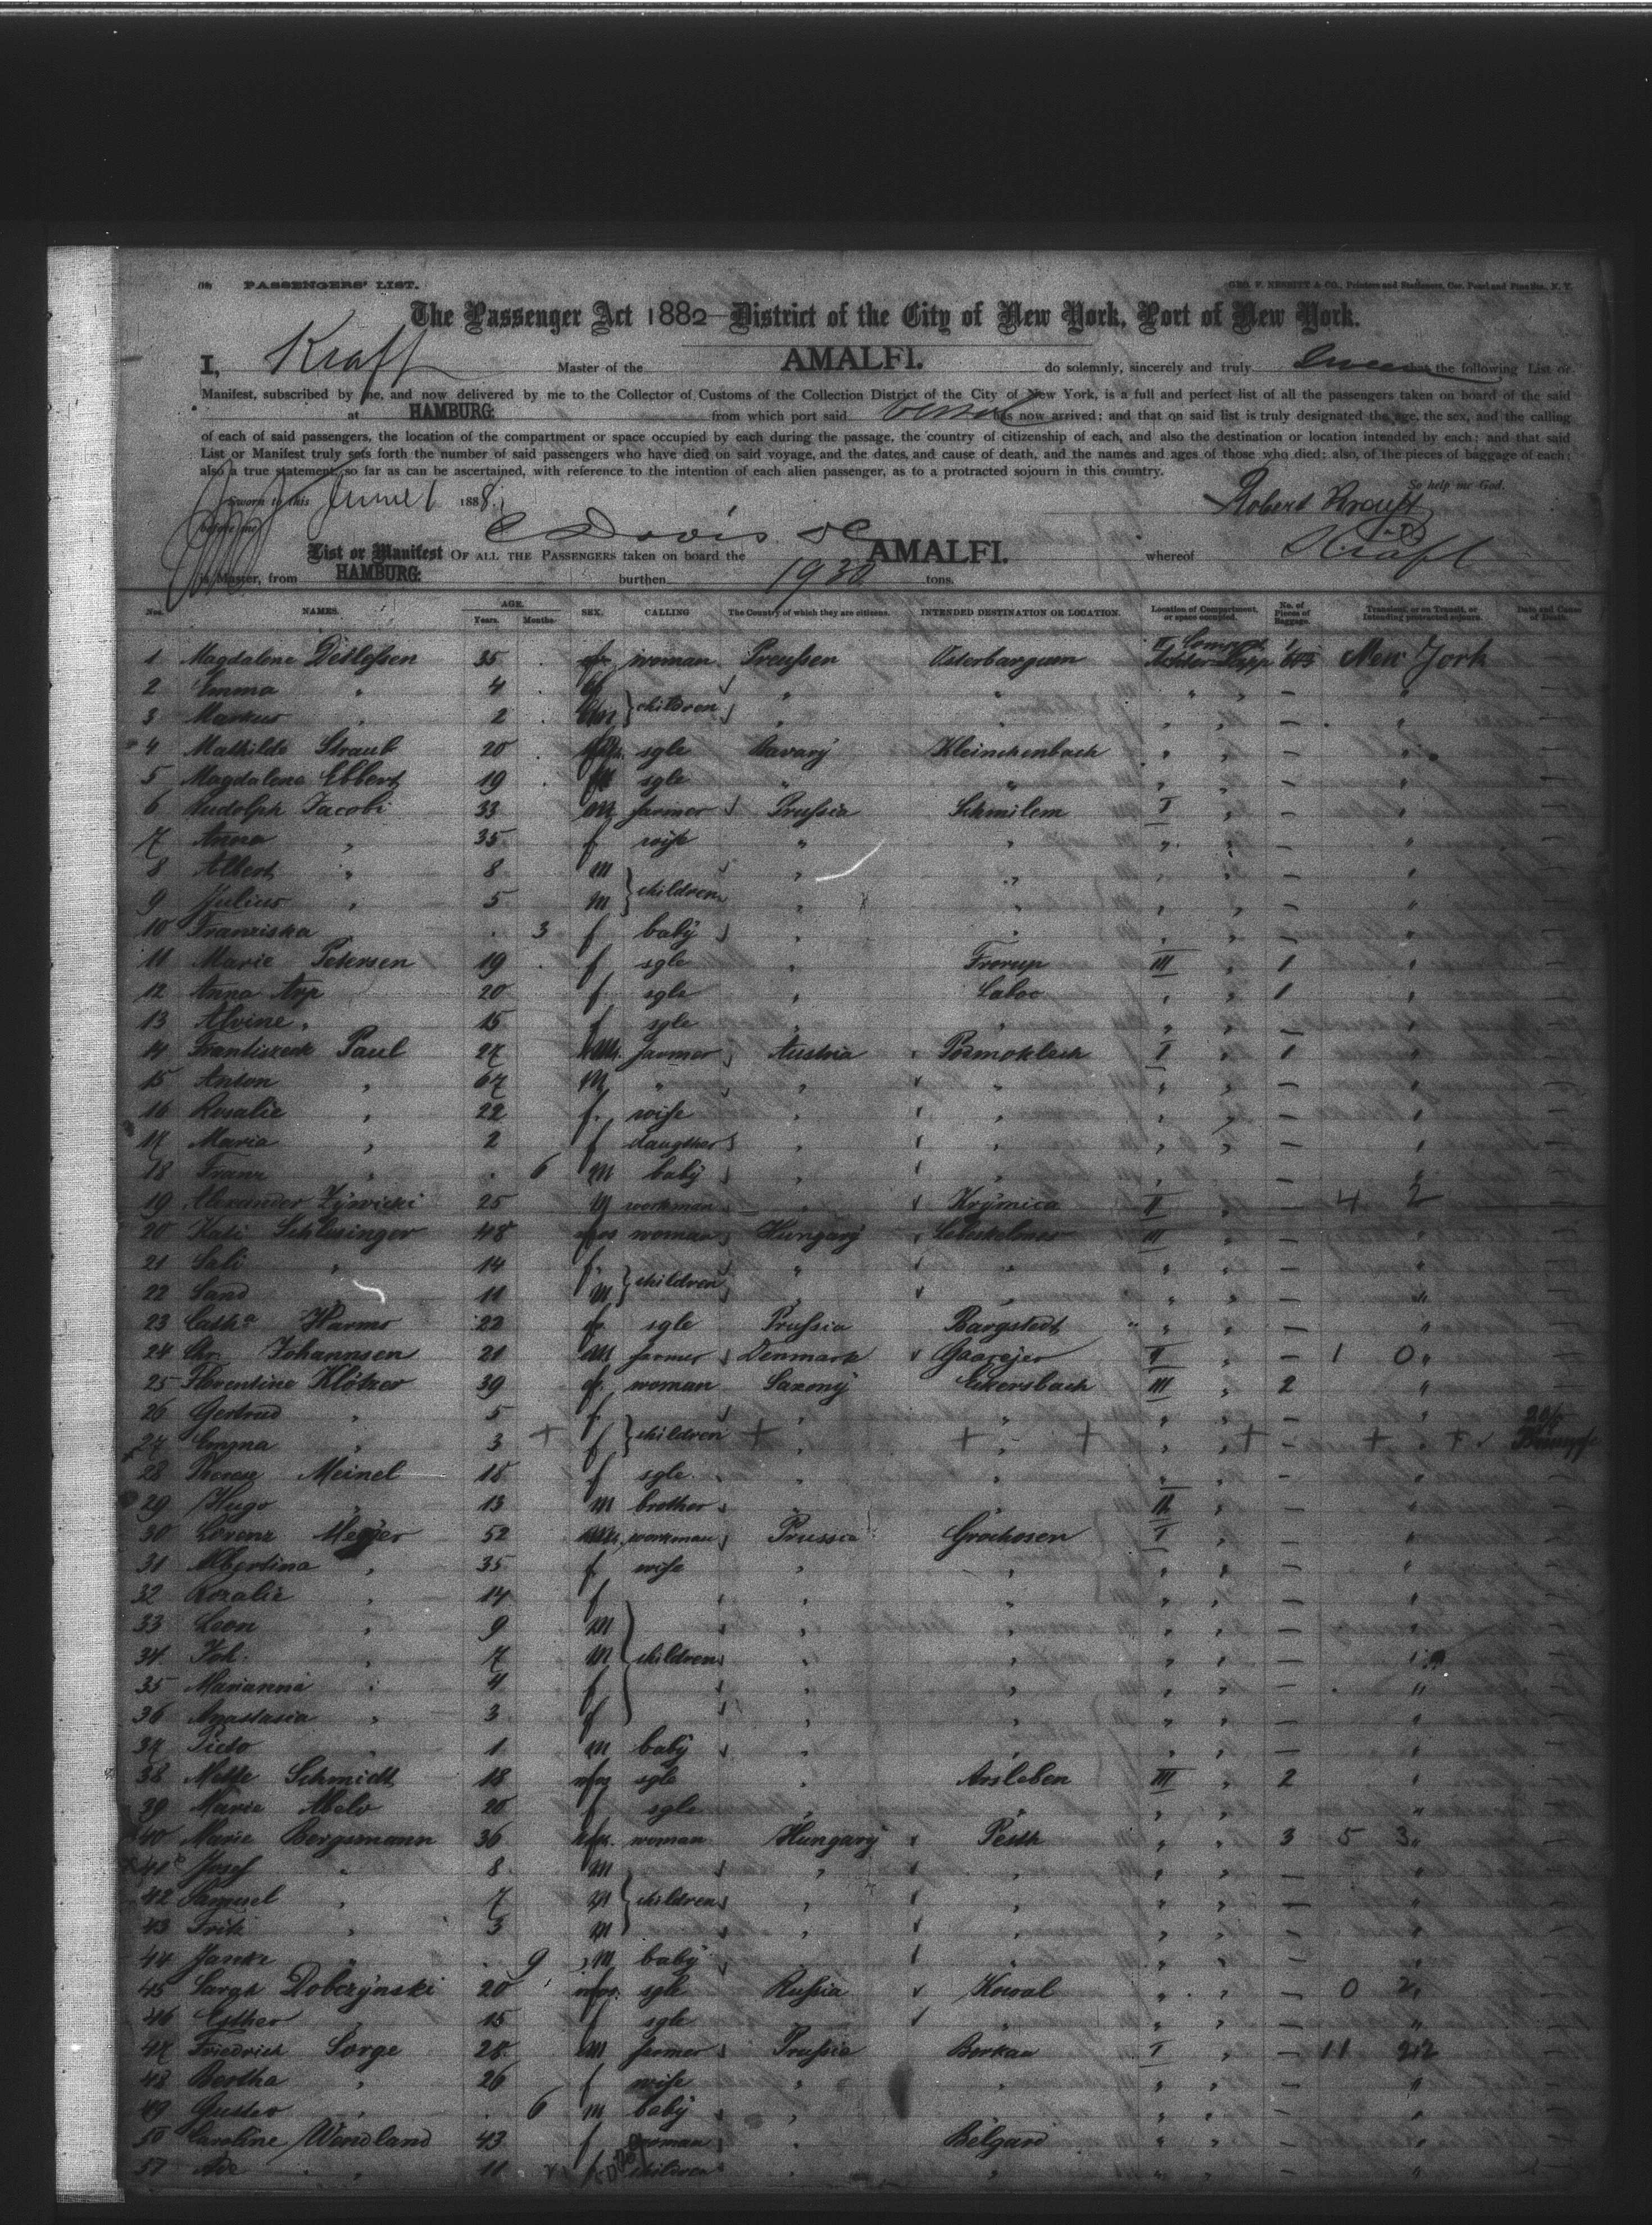 PASSENGERS' LIST.
GEO. F. NESBITT & CO., Printers and Stationers, Cor. Pearl and Pine Sts., N. Y.
The Passenger Act 1882 District of the City of New York, Port of New York.
I, Kraft Master of the AMALFI. do solemnly, sincerely and truly that the following List or
Manifest, subscribed by me, and now delivered by me to the Collector of Customs of the Collection District of the City of New York, is a full and perfect list of all the passengers taken on board of the said
at HAMBURG: from which port said vessel has now arrived; and that on said list is truly designated the age, the sex, and the calling
of each of said passengers, the location of the compartment or space occupied by each during the passage, the country of citizenship of each, and also the destination or location intended by each; and that said
List or Manifest truly sets forth the number of said passengers who have died on said voyage, and the dates, and cause of death, and the names and ages of those who died; also, of the pieces of baggage of each;
also a true statement, so far as can be ascertained, with reference to the intention of each alien passenger, as to a protracted sojourn in this country.
So help me God.
Sworn to this June 1 1888
Robert Krauft
before me
C Davis
List or Manifest OF ALL THE PASSENGERS taken on board the AMALFI. whereof Kraft
is Master, from HAMBURG: burthen 1930 tons.
Nos. NAMES. AGE. Years. Months. SEX. CALLING The Country of which they are citizens. INTENDED DESTINATION OR LOCATION. Location of Compartment, or space occupied. No. of Pieces of Baggage. Transient, or on Transit, or Intending protracted sojourn. Date and Cause of Death.
1 Magdalene Detlefsen 35 woman Preußen Osterbargum II New York
2 Emma " 4 f " " "
3 Markus " 2 m } children " " "
4 Mathilde Straub 20 sgle Bavary Kleinchenbach " "
5 Magdalena Ebbert 19 sgle " " "
6 Rudolph Jacobi 33 m farmer Prußia Schmilem I " — "
7 Anna " 35 f wife " " " — "
8 Albert " 8 m " " " — "
9 Julius " 5 m } children " " " — "
10 Franziska 3 f baby " " " — "
11 Marie Petersen 19 f sgle " Frorup III " 1 "
12 Anna Arp 20 f sgle " Laboe " 1 "
13 Alvine " 15 f sgle " " " — "
14 Frantiszek Paul 27 farmer Austria Posmoklech I " 1 "
15 Anton " 67 m " " " " — "
16 Rosalie " 22 f. wife " " " — "
17 Maria " 2 f daugther " " " — "
18 Franz " 6 m baby " " " — "
19 Alexander Zywicki 25 m workman " Krymica II " — 4 2
20 Kati Schlesinger 48 woman Hungary III " — "
21 Sali " 14 f " " " — "
22 Sand 11 m } children " " " — "
23 Catha Harms 22 sgle Prußia Bargstedt " " — "
24 Chr. Johannsen 21 farmer Denmark Gaarejer II " — 1 0 "
25 Florentine Klötzer 39 woman Saxony Eckersbach III " 2 "
26 Gertrud " 5 f " " " — "
27 Emma " 3 f } children " " " — "
28 Therese Meinel 18 f sgle " " " — "
29 Hugo " 13 m brother " " II " — "
30 Lorenz Meyer 52 workman Prussia Grochosen I " — "
31 Albertina " 35 f wife " " " — "
32 Rozalie " 14 f " " " — "
33 Leon " 9 m " " " — "
34 Joh. " 7 m } children " " " — "
35 Marianna " 4 f " " " — "
36 Anastasia " 3 f " " " — "
37 1 m baby " " " — "
38 Mette Schmidt 18 sgle " Arsleben III " 2 "
39 Marie Abelo 20 f sgle " " " — "
40 Marie Bergsmann 36 woman Hungary Pesth " " 3 5 3 "
41 Josef " 8 m " " " — "
42 Samuel " 7 m } children " " " — "
43 Fritz " 3 m " " " — "
44 " 9 m baby " " " — "
45 Sarah Dobczynski 20 sgle Rußia Kowal " " — 0 2 "
46 Esther " 15 f sgle " " " — "
47 Friedrich Sorge 28 m farmer Prußia Borkau I " — 11 22
48 Bertha " 26 f wife " " " — "
49 Gustav " 6 m baby " " " — "
50 Caroline Wendland 43 f woman " Belgard " " — "
51 Ade " 11 f children " " " — "